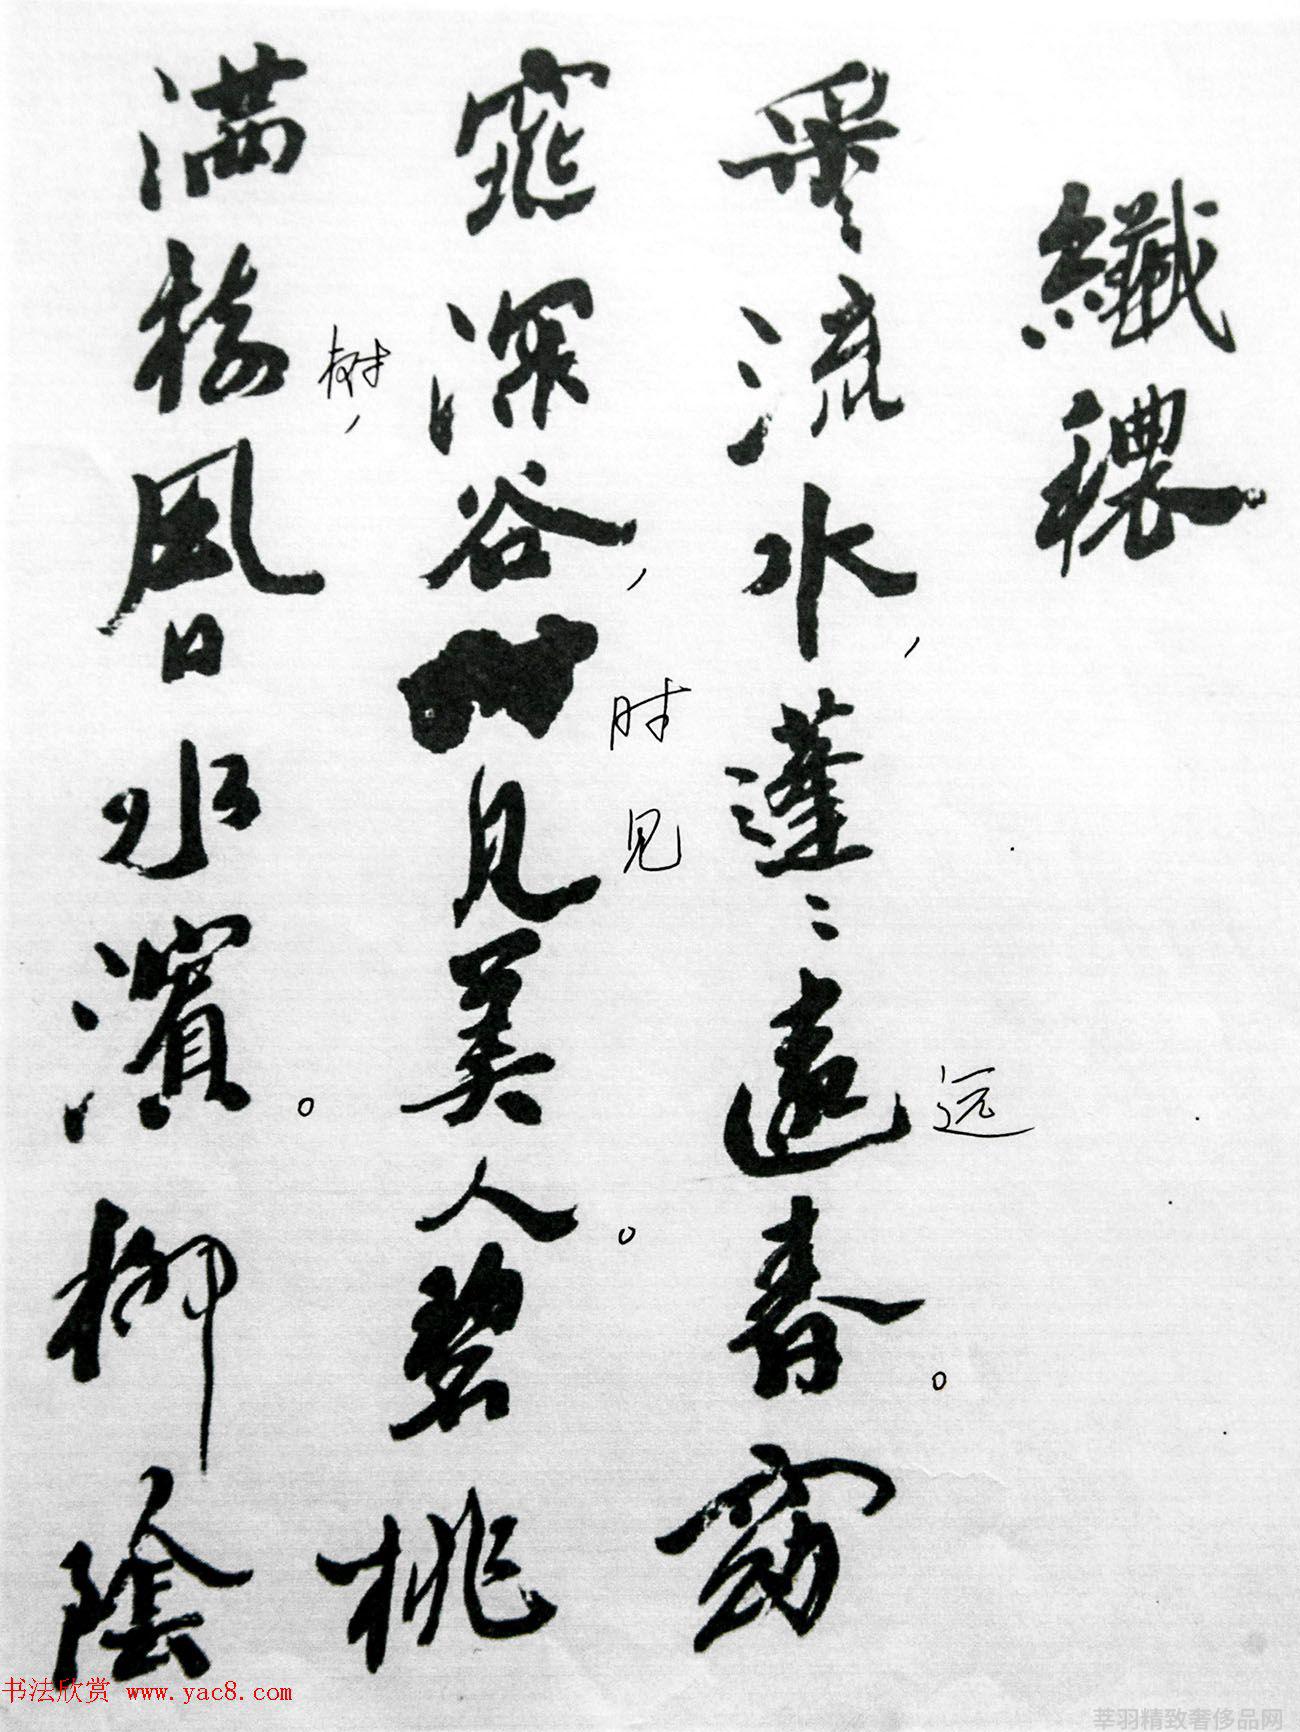 纖穠
采〻流水，蓬〻遠春。窈
窕深谷，見美人。碧桃
满樹風日水濱。柳陰
远
时见
树，
书法欣赏 www.yac8.com
莘羽精致奢侈品网